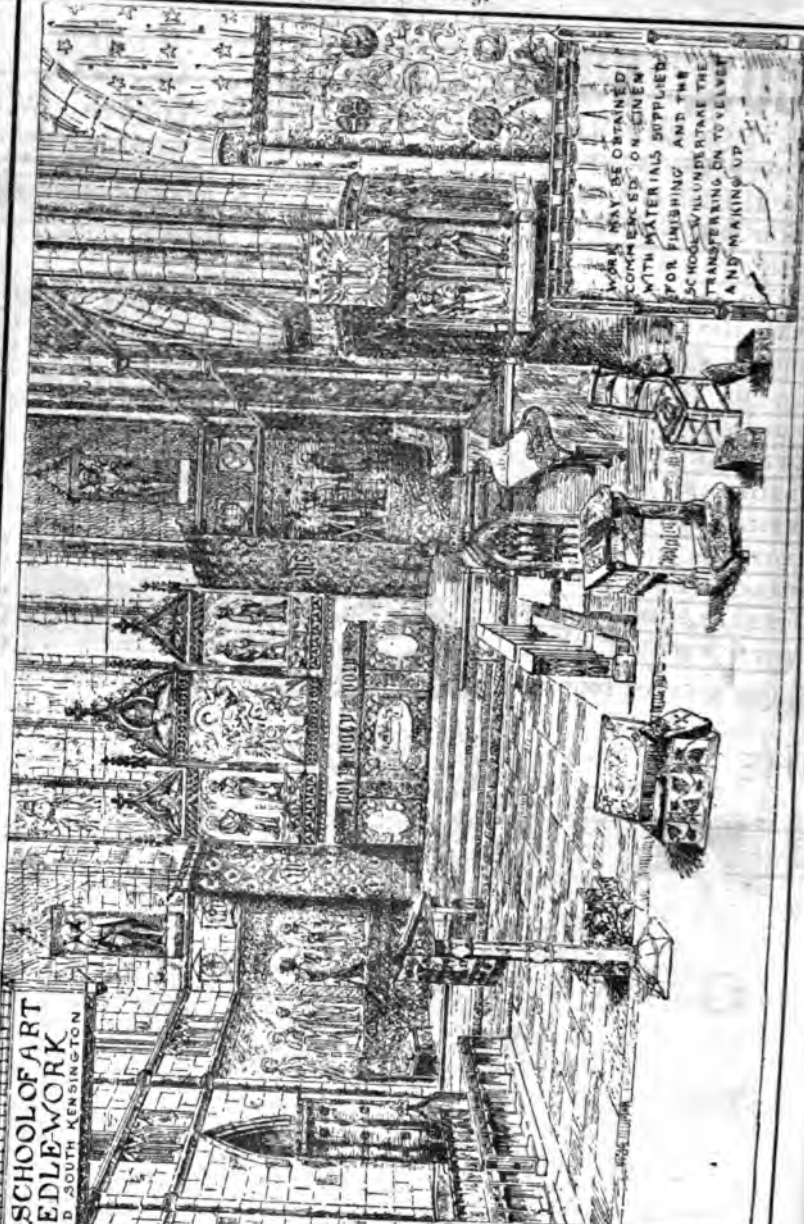 SCHOOL OF ART
EDLE-WORK
D SOUTH KENSINGTON
WORK MAY BE OBTAINED
COMMENCED ON LINEN
WITH MATERIALS SUPPLIED
FOR FINISHING AND THE
SCHOOL WILL UNDERTAKE THE
TRANSFERRING ON TO VELVET
AND MAKING UP